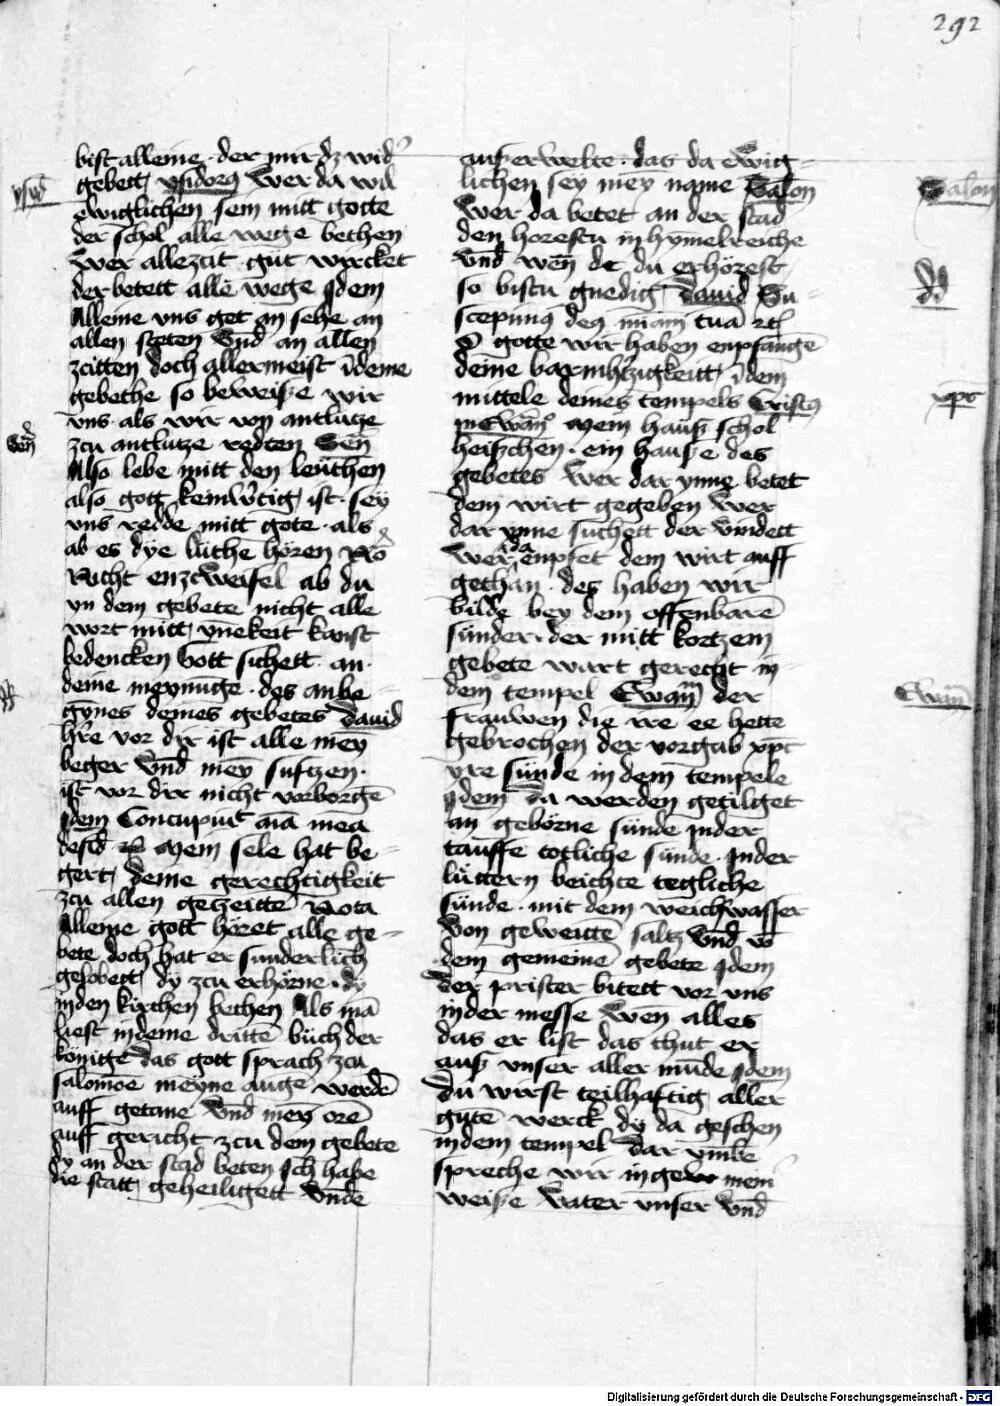 292
bist alleine · der mir dz wid᾽
gebett ysidorꝰ Wer da wil
ewiglichen sein mitt gotte
der schol alle wege bethen
Wer allezcit güt wircket
der betett alle wege Jdem
Alleine vns get an sehe an
allen steten Vnd an allen
zcitten doch allermeist ī deme
gebethe so beweiße wir
vns als wir von antlutze
zcu antlutze redten Sen̄
Also lebe mitt den leuthen
also gott keinwtig ist · sey
vns redde mitt gote · als
ab es dye luthe hören No
Nicht enzcweifel ab du
yn dem gebete nicht alle
wort mitt ynnekeit kanst
bedencken Gott sichett an
deine meynunge · des anbe
gynnes deines gebetes Dauid
h̄re vor dir ist alle mey̅
beger Vnd mey̅ suftzen ·
ist vor dir nicht vorborge̅
Jdem Concupiuit aīa mea
desid Mein sele hat be
gert deine gerechtigkeit
zcu allen getzeitte̅ Nota
Alleine gott höret alle ge
bete doch hat er sunderlich
gelobett dy zcu erhörne · dy
in den kirchen bethen Als ma̅
liest in deme dritte̅ büch der
könige das gott sprach zcu
salomoe meyne auge werde̅
auff getane Vnd mey̅ ore̅
auff gericht zcu dem gebete
dy an der stad beten Jch habe
die statt geheiligett Vnde
außerwelte · das da ewig
lichen sey mey̅ name Salon̄
Wer da betet an der stad
den horestu in hymelreiche
Vnd wen̄ de du erhörest
so bistu gnedig Dauid Su
scepimꝰ deꝰ mi̅am tua̅ ⁊c
O gotte wir haben enpfange̅
deine barmh̅tzigkeitt ī dem
mittele deines tempels Cristꝰ
in Ewa̅n° Mein hauß schol
heißchen · ein hauße des
gebetes Wer dar ynne betet
dem wirt gegeben Wer
dar ynne suchett der vindett
Wer da enpfet dem wirt auff
gethan · des haben wir
bilde bey dem offenbare̅
sünder · der mitt kortzem
gebete wart gerecht in
dem tempel Ewan̅ der
frauwen die ire ee hette
gebrochen der vorgab xp̅c
yre sünde in dem tempele
Jdem Da werden getilget
an gebörne sünde in der
tauffe totliche sünde · in der
lüttern beichte tegliche
sünde · mit dem weichwasser
Von geweitte̅ saltz Vnd vo̅
dem gemeine̅ gebete Jdem
Der prister bitett vor vns
in der messe Wen̄ alles
das er list das thut er
auß vnser aller mu̅de Jdem
Du wirst teilhaftig aller
gute̅ werck dy da geschen
in dem tempel Dar vmbe
spreche wir in mein̄
weiße Vater vnser Vnd
Salon̄
dd
xp̅c
Ewan̅
ysid
Sen̄